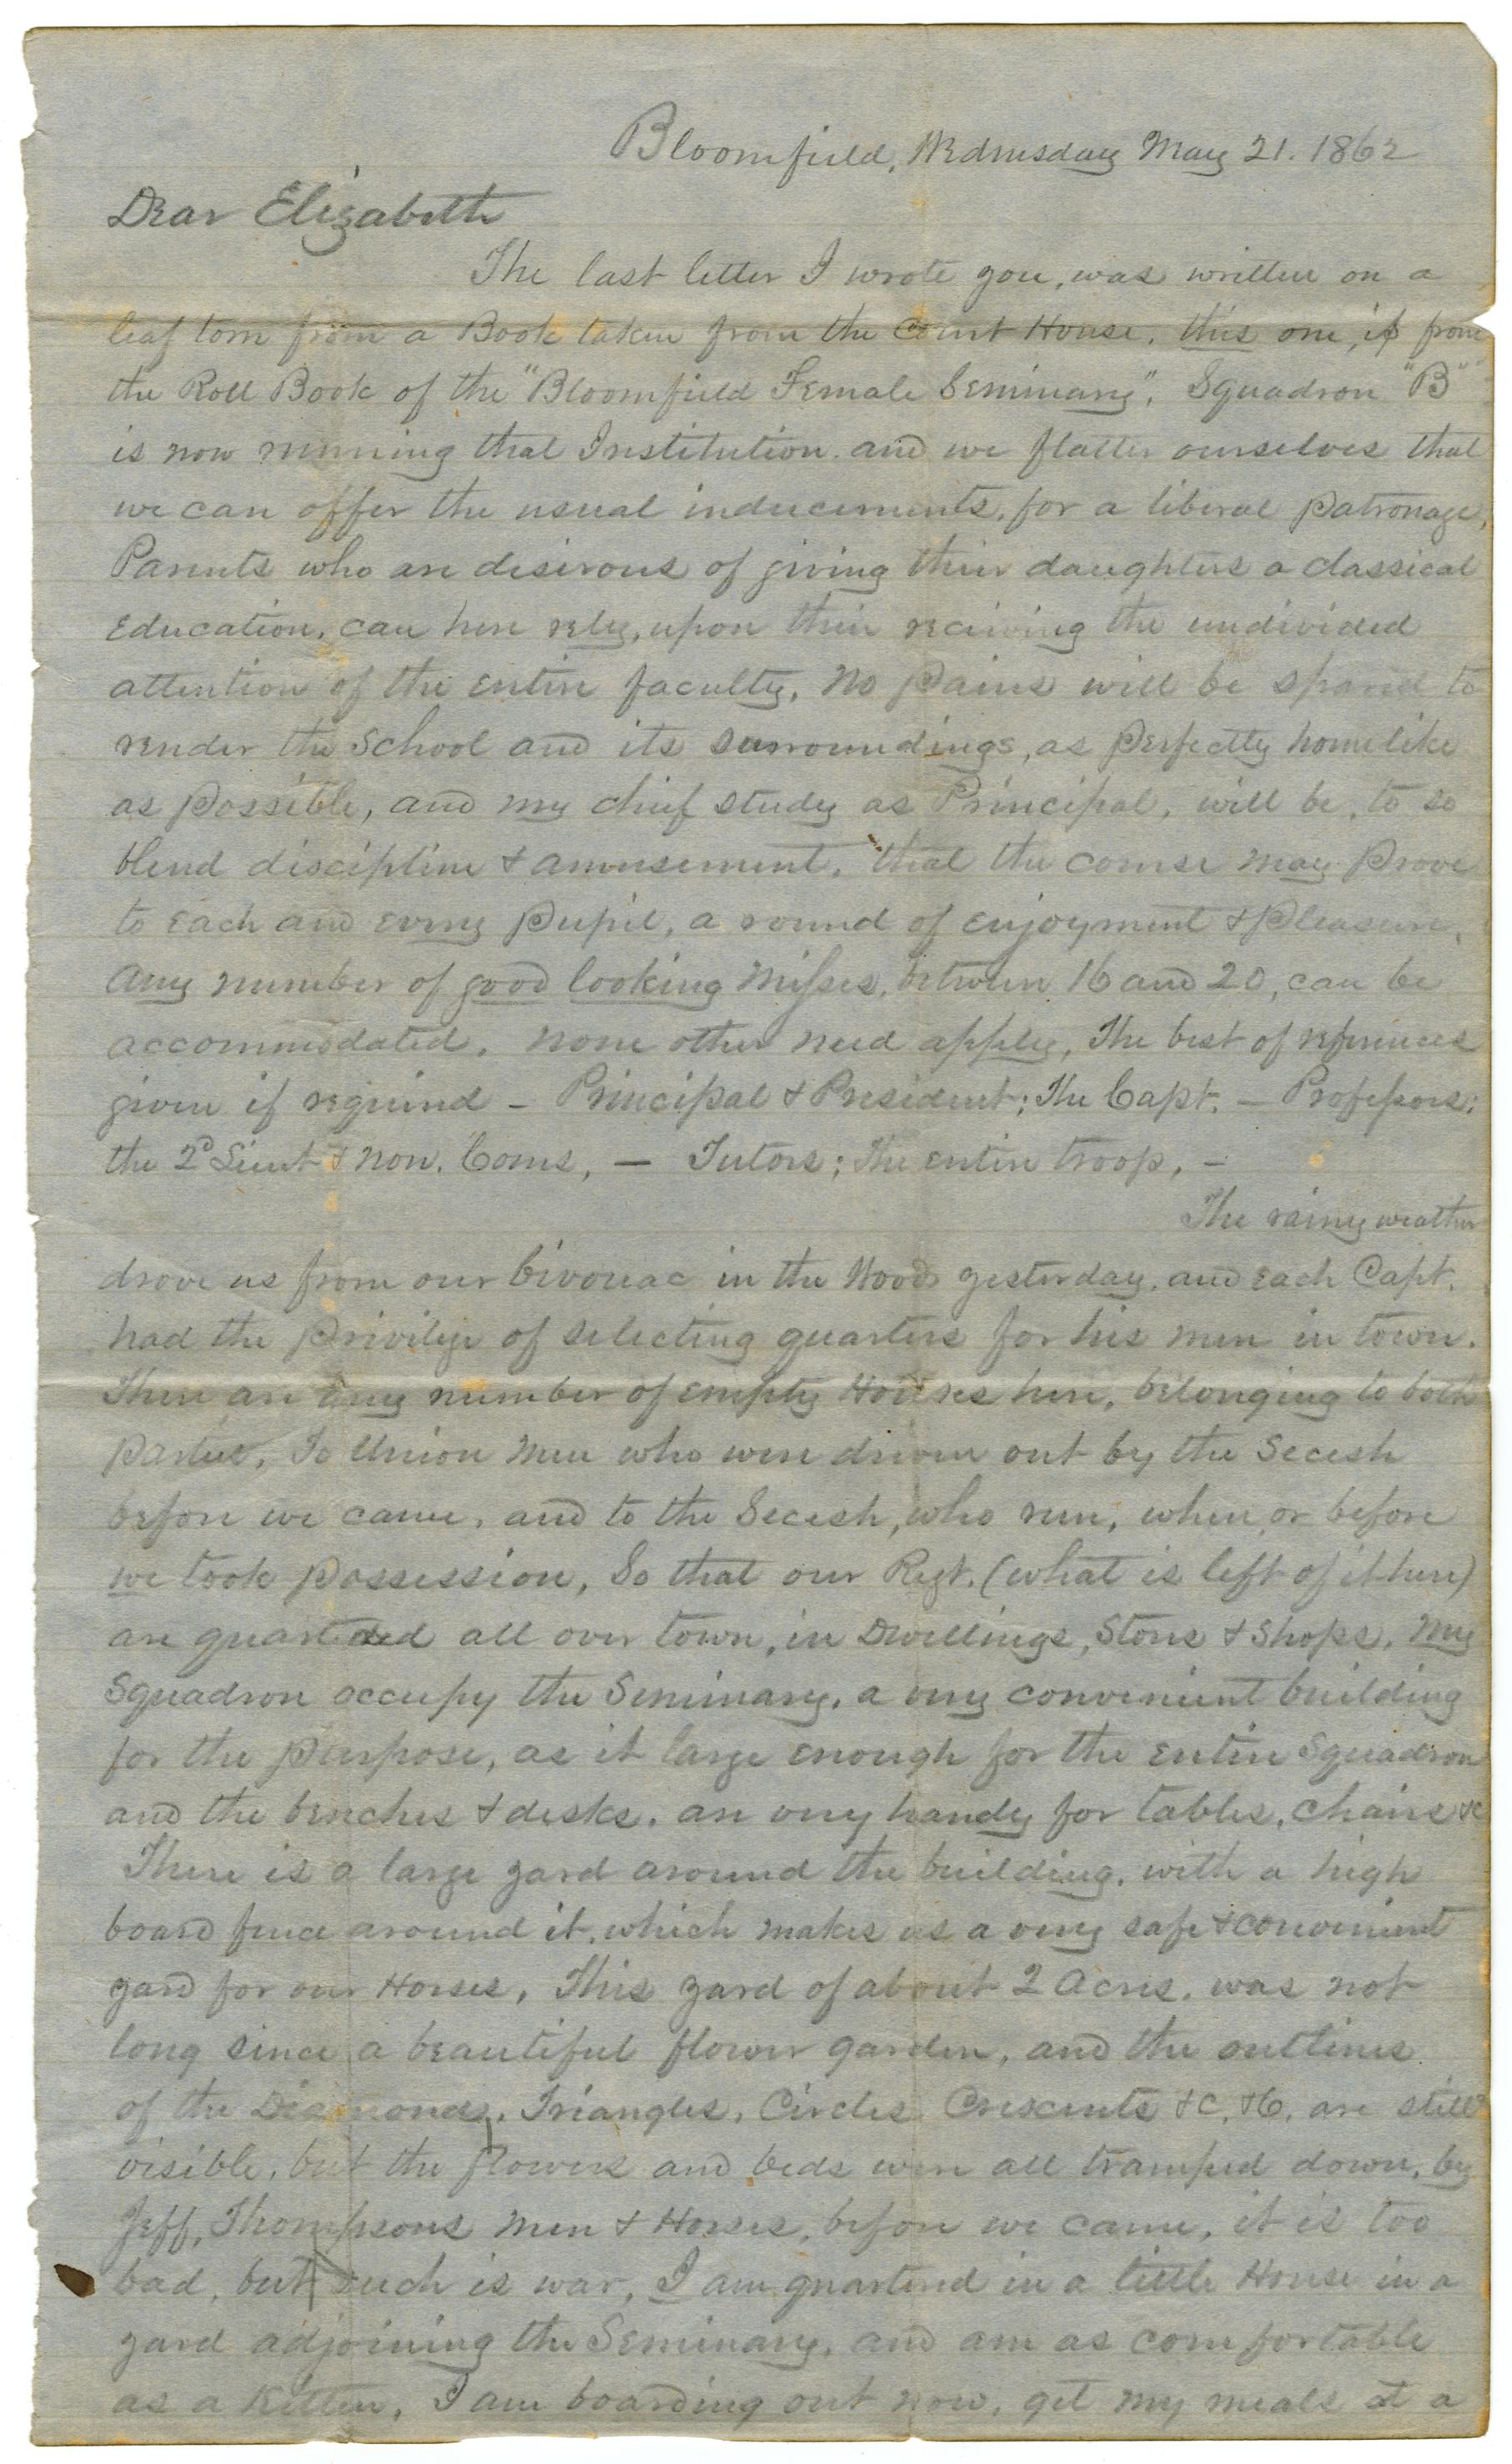 Bloomfield, Wednesday May 21. 1862
Dear Elizabeth
The last letter I wrote you, was written on a
leaf torn from a Book taken from the Court House, this one, is from
the Roll Book of the "Bloomfield Female Seminary". Squadron "B"
is now running that Institution. and we flatter ourselves that
we can offer the usual inducements, for a liberal patronage,
Parents who are desirous of giving their daughters a classical
Education, can here rely, upon their reciving the undivided
attention of the entire faculty, No pains will be spared to
render the School and its surroundings, as perfectly homelike
as possible, and my chief study as Principal, will be, to so
blend discipline & amusement, that the course may prove
to each and every pupil, a round of enjoyment & pleasure,
Any number of good looking Misses, between 16 and 20, can be
accommodated, none other need apply, The best of references
given if required - Principal & President; The Capt. - Professors;
the 2d Lieut & Non. Coms, — Tutors; The entire troop, -
The rainy weather
drove us from our bivouac in the Woods yesterday, and each Capt.
had the privilige of selecting quarters for his men in town.
There are any number of empty Houses here, belonging to both
parties, To Union Men who were driven out by the Secesh
before we came, and to the Secesh, who run, when, or before
we took possession, So that our Regt. (what is left of it here)
are quartered all over town, in Dwellings, Stores & Shops, My
Squadron occupy the Seminary, a very convenient building
for the purpose, as it large enough for the entire Squadron
and the benches & desks, are very handy for tables, chairs &c
There is a large yard around the building, with a high
board fence around it, which makes us a very safe & convenient
yard for our Horses, This yard of about 2 Acres, was not
long since a beautiful flower garden, and the outlines
of the Diamonds, Triangles, Circles Crescents &c, &c, are still
visible, but the flowers and beds were all tramped down, by
Jeff, Thompsons Men & Horses, before we came, it is too
bad, but such is war, I am quartered in a little House in a
yard adjoining the Seminary, and am as comfortable
as a Kitten, I am boarding out now, get my meals at a